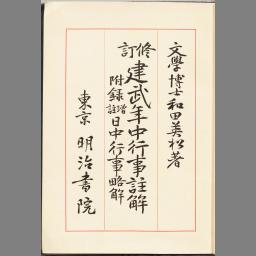 文學博士和田英松著
修訂 建武年中行事註解
附録 増註 日中行事略解
東京 明治書院